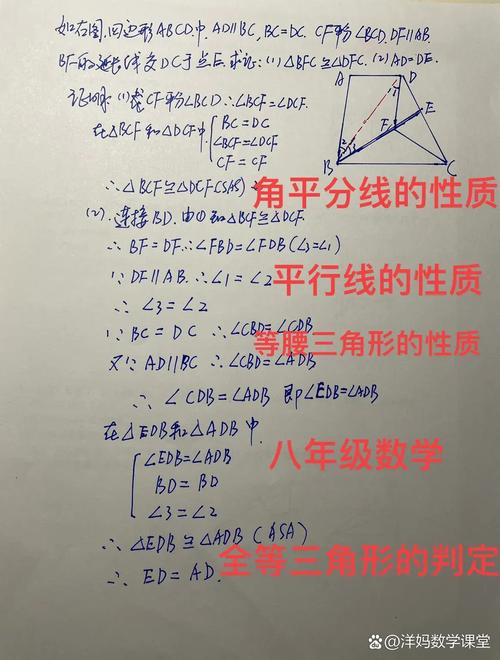 如右图,四边形ABCD中,AD∥BC,BC=DC. CF平分∠BCD,DF∥AB.
BF的延长线交DC于点E.求证:(1)△BFC≌△DFC. (2)AD=DE.
证明:(1)∵CF平分∠BCD ∴∠BCF=∠DCF.
在△BCF和△DCF中 { BC=DC
∠BCF=∠DCF
CF=CF
∴△BCF≌△DCF(SAS)
角平分线的性质
(2).连接BD.由(1)知△BCF≌△DCF.
∴BF=DF.∴∠FBD=∠FDB(∠3=∠1)
∵DF∥AB.∴∠1=∠2
平行线的性质
∴∠3=∠2
∵BC=DC ∴∠CBD=∠CDB
等腰三角形的性质
又∵AD∥BC ∴∠CBD=∠ADB
∴∠CDB=∠ADB 即∠EDB=∠ADB
在△EDB和△ADB中
八年级数学
{ ∠EDB=∠ADB
BD=BD
∠3=∠2
∴△EDB≌△ADB(ASA)
全等三角形的判定
∴ED=AD.
A D
E
F
1
2
3
B C
洋妈数学课堂